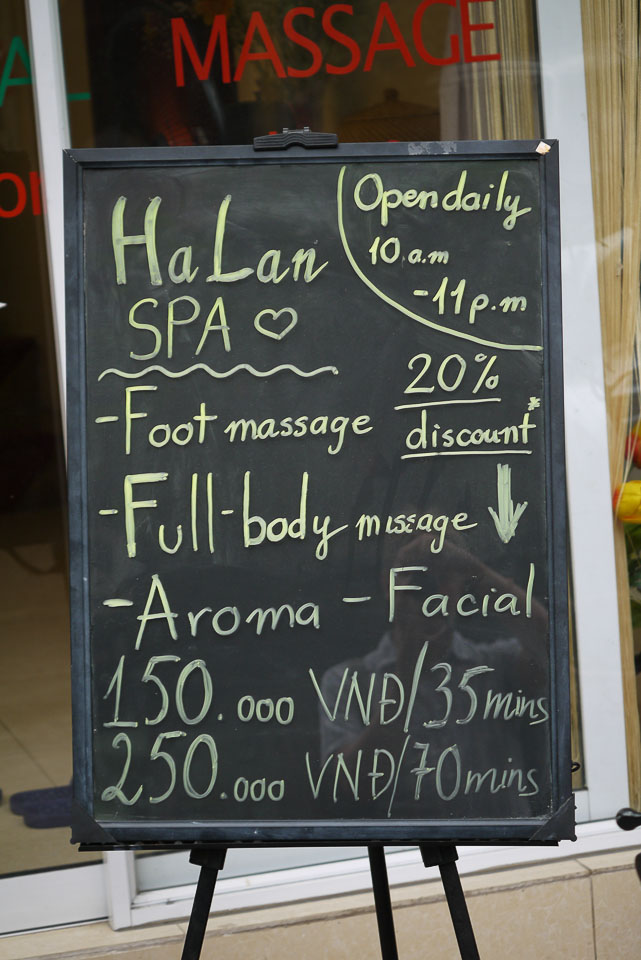 MASSAGE
Ha Lan
SPA ♡
Open daily
10 a.m
-11 p.m
20%
discount*
- Foot massage
- Full-body massage
- Aroma - Facial
150.000 VNĐ/35mins
250.000 VNĐ/70mins